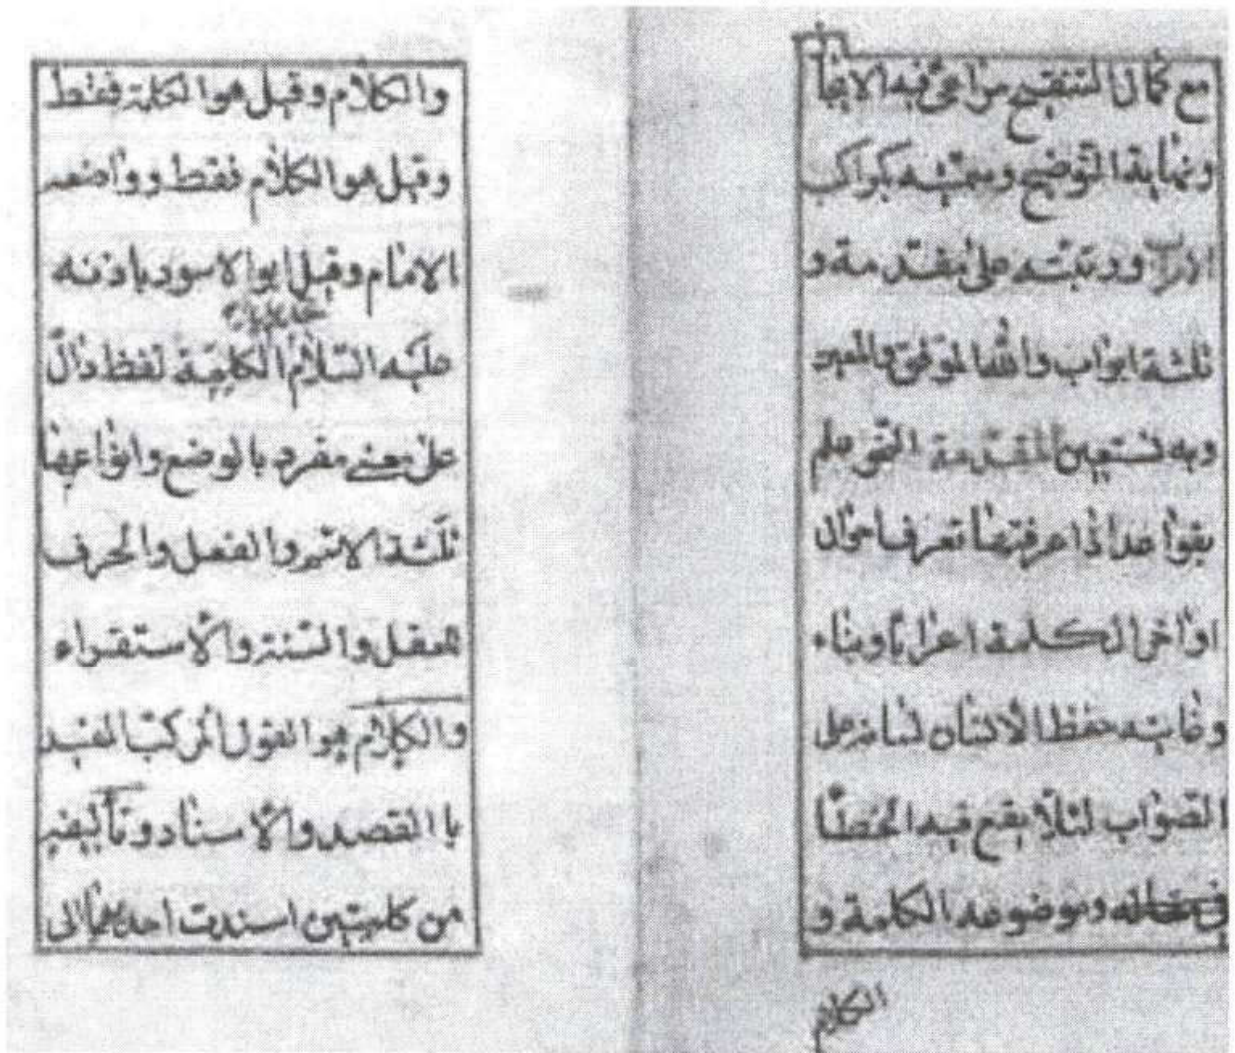 مع كمال التنقيح مراعى فيه الايجا
ونهاية التوضيح وسميته بكواكب
ورتبته على مقدمة و
ثلثة ابواب والله الموفق والمعين
وبه نستعين المقدمة النحو علم
بقواعد اذا عرفتها تعرف احوال
اواخر الكلمة اعرابا وبناء
وغايته حفظ الانسان لسانه على
الصواب لئلا يقع فيه الخطأ
وموضوعه الكلمة و
الكلام
والكلام وقيل هو الكلمة فقط
وقيل هو الكلام فقط وواضعه
الامام وقيل ابو الاسود باذنه
عليه السلام الكلمة لفظ دالّ
على معنى مفرد بالوضع وانواعها
ثلثة الاسم والفعل والحرف
للعقل والسنة والاستقراء
والكلام هو القول المركب المفيد
با القصد والاسناد وتأليفه
من كلمتين اسندت احديهما الى